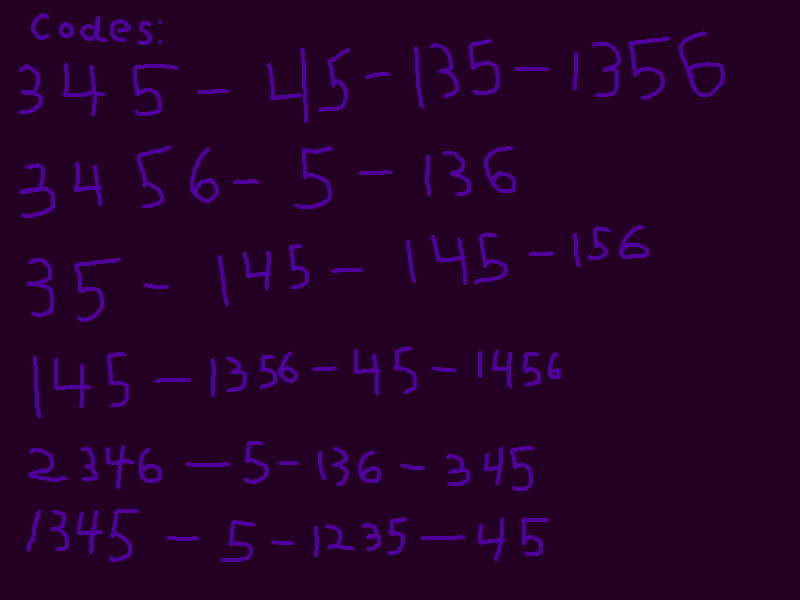 Codes:
345 - 45 - 135 - 1356
3456 - 5 - 136
35 - 145 - 145 - 156
145 - 1356 - 45 - 1456
2346 - 5 - 136 - 345
1345 - 5 - 1235 - 45